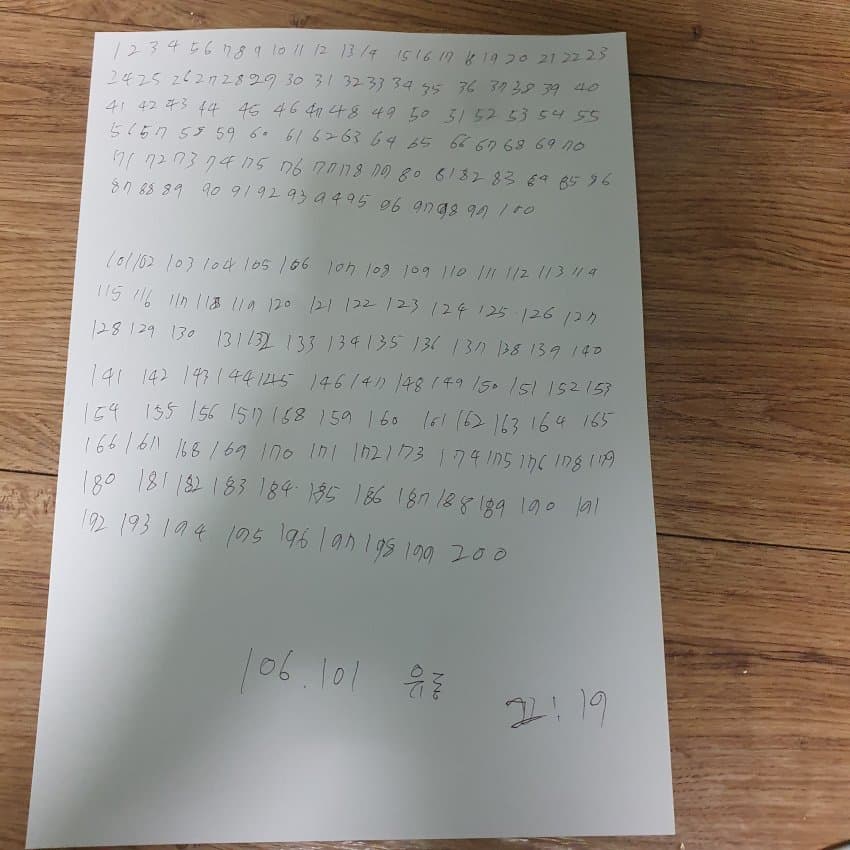 1 2 3 4 5 6 7 8 9 10 11 12 13 14 15 16 17 18 19 20 21 22 23
24 25 26 27 28 29 30 31 32 33 34 35 36 37 38 39 40
41 42 43 44 45 46 47 48 49 50 51 52 53 54 55
56 57 58 59 60 61 62 63 64 65 66 67 68 69 70
71 72 73 74 75 76 77 78 79 80 81 82 83 84 85 86
87 88 89 90 91 92 93 94 95 96 97 98 99 100
101 102 103 104 105 106 107 108 109 110 111 112 113 114
115 116 117 118 119 120 121 122 123 124 125 126 127
128 129 130 131 132 133 134 135 136 137 138 139 140
141 142 143 144 145 146 147 148 149 150 151 152 153
154 155 156 157 158 159 160 161 162 163 164 165
166 167 168 169 170 171 172 173 174 175 176 178 179
180 181 182 183 184 185 186 187 188 189 190 191
192 193 194 195 196 197 198 199 200
106.101 유룡
끄: 19